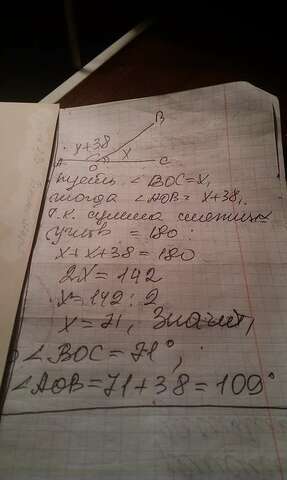 B
x+38
x
A
O
C
Пусть ∠BOC=x,
тогда ∠AOB= x+38,
т.к. сумма смежных
углов = 180:
x+x+38=180
2x=142
x=142:2
x=71, Значит,
∠BOC=71°,
∠AOB=71+38=109°